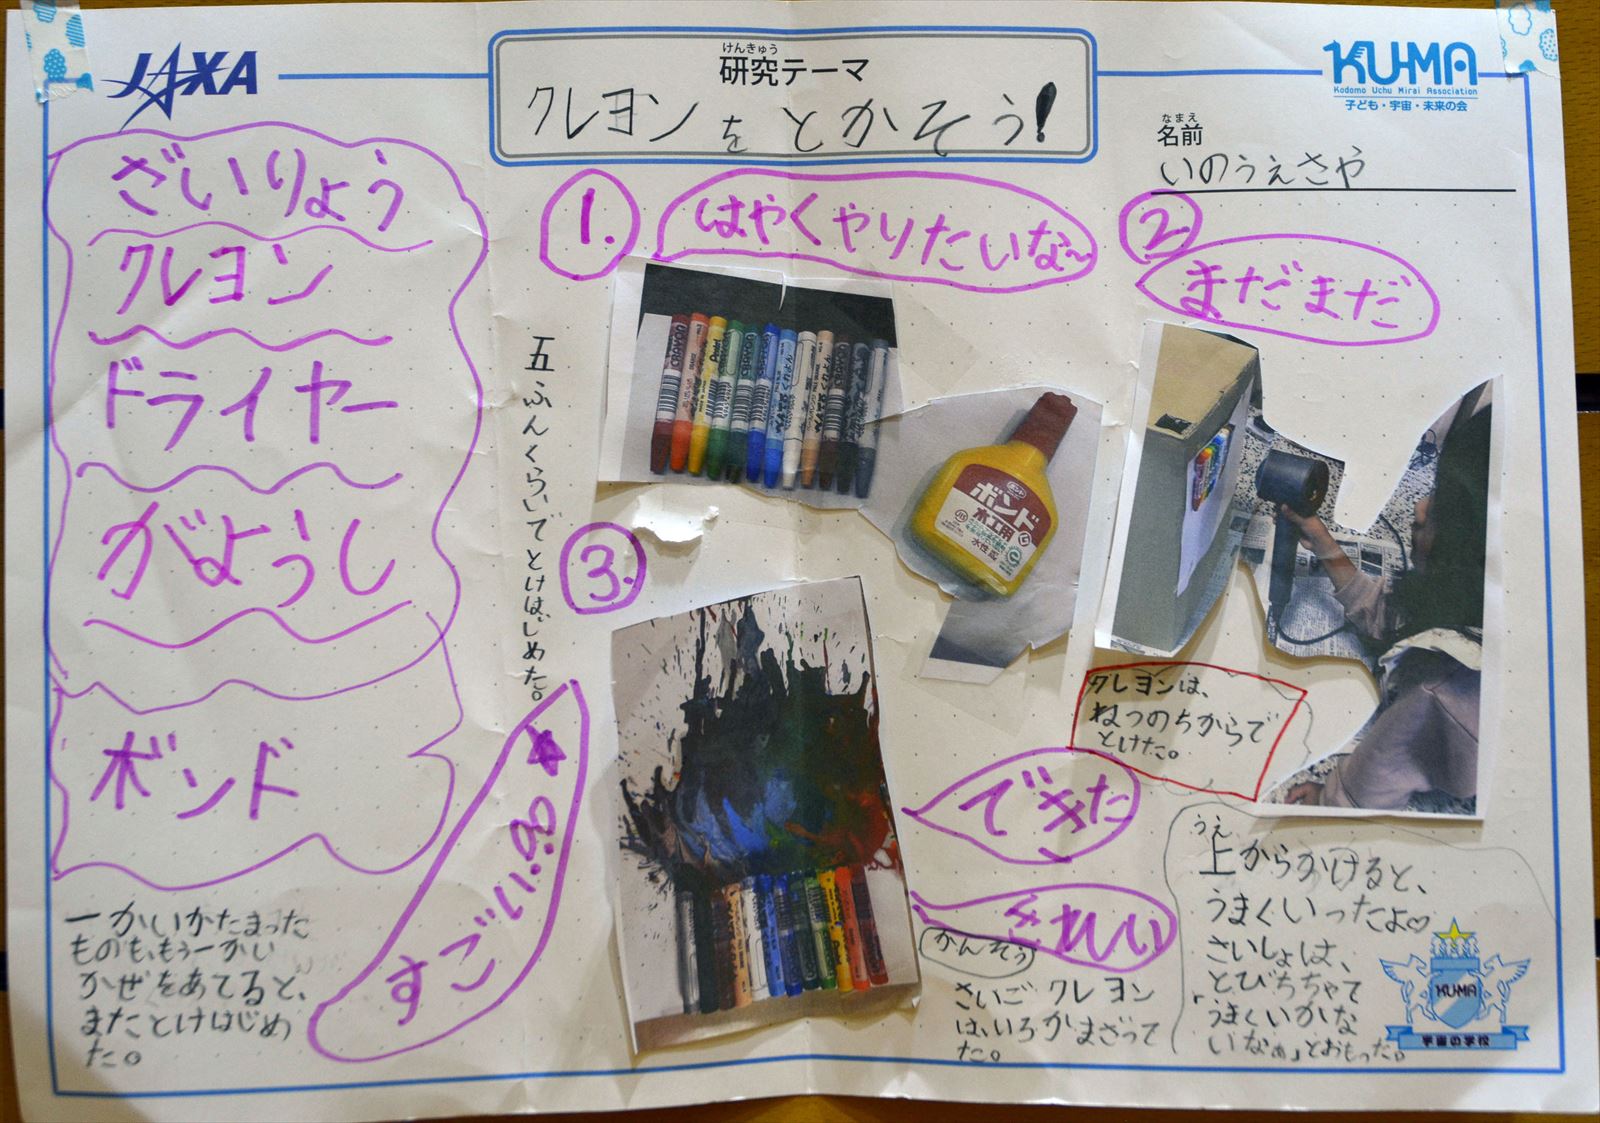 JAXA
けんきゅう
研究テーマ
クレヨンをとかそう!
KU-MA
Kodomo Uchu Mirai Association
子ども・宇宙・未来の会
なまえ
名前
いのうえさや
ざいりょう
クレヨン
ドライヤー
がようし
ボンド
1.
はやくやりたいな〜
五ふんくらいでとけはじめた。
ボンド
木工用
水性
2.
まだまだ
クレヨンは、
ねつのちからで
とけた。
3.
できた
きれい
すごい!
一かいかたまった
ものも、もう一かい
かぜをあてると、
またとけはじめ
た。
かんそう
さいごクレヨン
は、いろがまざって
た。
うえ
上からかけると、
うまくいったよ♡
さいしょは、
とびちちゃて
「うまくいかな
いなぁ」とおもった。
KU-MA
宇宙の学校